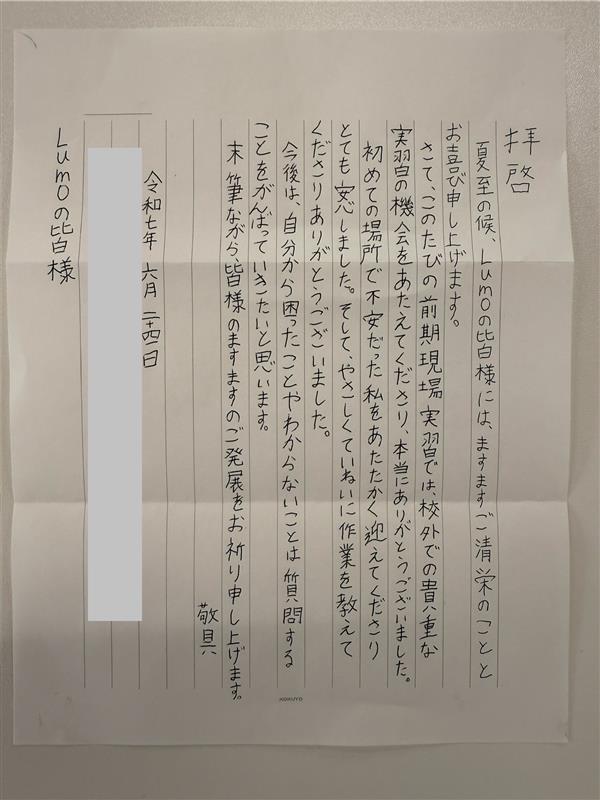 拝啓
夏至の候、Lumoの皆様には、ますますご清栄のことと
お喜び申し上げます。
さて、このたびの前期現場実習では、校外での貴重な
実習の機会をあたえてくださり、本当にありがとうございました。
初めての場所で不安だった私をあたたかく迎えてくださり
とても安心しました。そして、やさしくていねいに作業を教えて
くださりありがとうございました。
今後は、自分から困ったことやわからないことは質問する
ことをがんばっていきたいと思います。
末筆ながら、皆様のますますのご発展をお祈り申し上げます。
敬具
令和七年 六月 二十四日
Lumoの皆様
KOKUYO